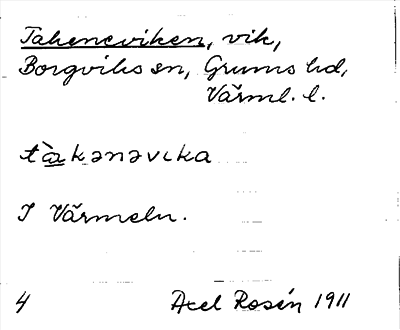 Takeneviken, vik,
Borgviks sn, Grums hd,
Värml. l.
tàkənəvıka
I Värmeln.
4 Axel Rosén 1911